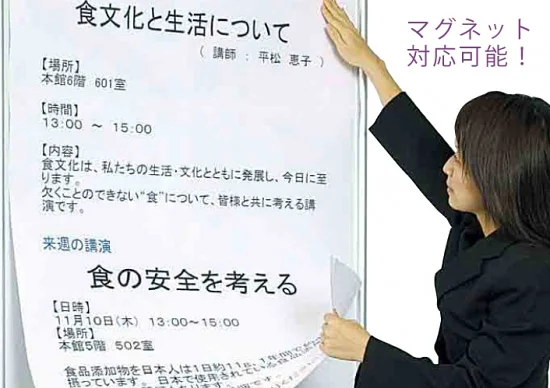 食文化と生活について
（ 講師 ： 平松 恵子 ）
【場所】
本館6階 601室
【時間】
13:00 ～ 15:00
【内容】
食文化は、私たちの生活・文化とともに発展し、今日に至
ります。
欠くことのできない“食”について、皆様と共に考える講
演です。
来週の講演
食の安全を考える
【日時】
11月10日(木) 13:00～15:00
【場所】
本館5階 502室
食品添加物を日本人は1日約11g、1年間
摂っています。 日本で使用されている食品
マグネット
対応可能！